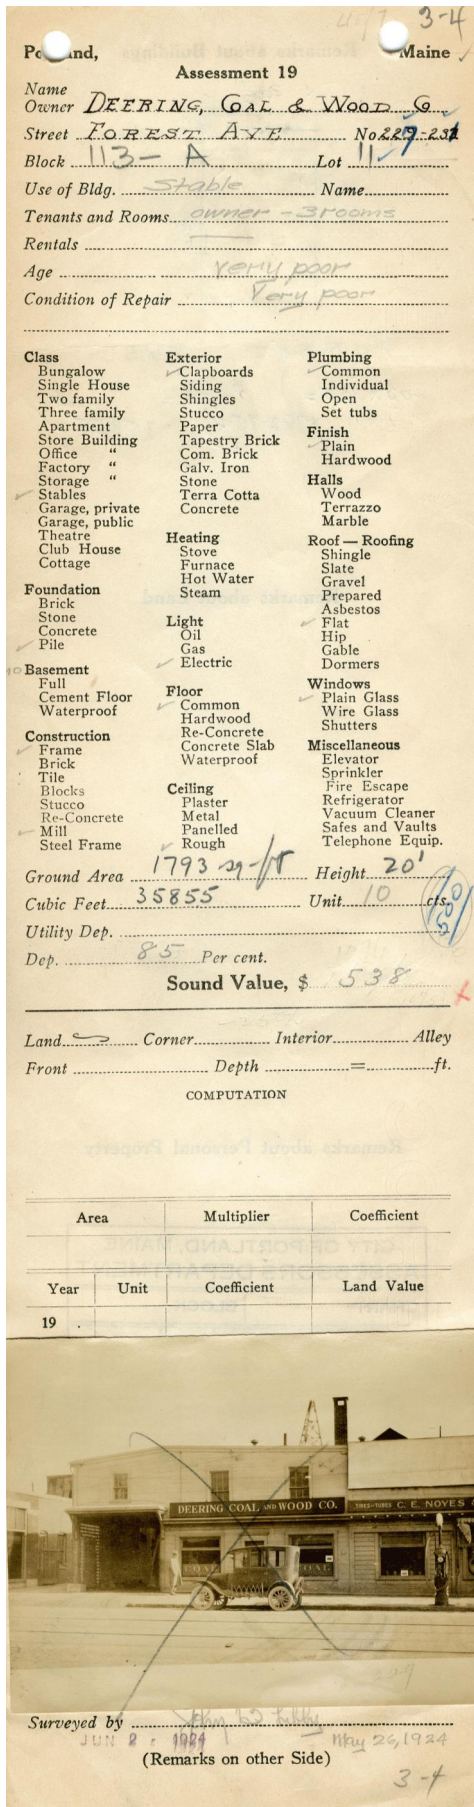 3-4
Portland, Maine
Assessment 19
Name
Owner DEERING, COAL & WOOD CO
Street FOREST AVE No 229-231
Block 113-A Lot 11
Use of Bldg. Stable Name
Tenants and Rooms owner - 3 rooms
Rentals
Age very poor
Condition of Repair Very poor
Class
Bungalow
Single House
Two family
Three family
Apartment
Store Building
Office "
Factory "
Storage "
Stables
Garage, private
Garage, public
Theatre
Club House
Cottage
Foundation
Brick
Stone
Concrete
Pile
Basement
Full
Cement Floor
Waterproof
Construction
Frame
Brick
Tile
Blocks
Stucco
Re-Concrete
Mill
Steel Frame
Exterior
Clapboards
Siding
Shingles
Stucco
Paper
Tapestry Brick
Com. Brick
Galv. Iron
Stone
Terra Cotta
Concrete
Heating
Stove
Furnace
Hot Water
Steam
Light
Oil
Gas
Electric
Floor
Common
Hardwood
Re-Concrete
Concrete Slab
Waterproof
Ceiling
Plaster
Metal
Panelled
Rough
Plumbing
Common
Individual
Open
Set tubs
Finish
Plain
Hardwood
Halls
Wood
Terrazzo
Marble
Roof — Roofing
Shingle
Slate
Gravel
Prepared
Asbestos
Flat
Hip
Gable
Dormers
Windows
Plain Glass
Wire Glass
Shutters
Miscellaneous
Elevator
Sprinkler
Fire Escape
Refrigerator
Vacuum Cleaner
Safes and Vaults
Telephone Equip.
Ground Area 1793 sq-ft Height 20'
Cubic Feet 35855 Unit 10 cts.
Utility Dep.
Dep. 85 Per cent.
Sound Value, $ 538
Land Corner Interior Alley
Front Depth = ft.
COMPUTATION
Area Multiplier Coefficient
Year Unit Coefficient Land Value
19
DEERING COAL AND WOOD CO.
TIRES-TUBES C. E. NOYES
COAL
COAL
Surveyed by John W Libby
JUN 2 1924 May 26, 1924
(Remarks on other Side)
3-4